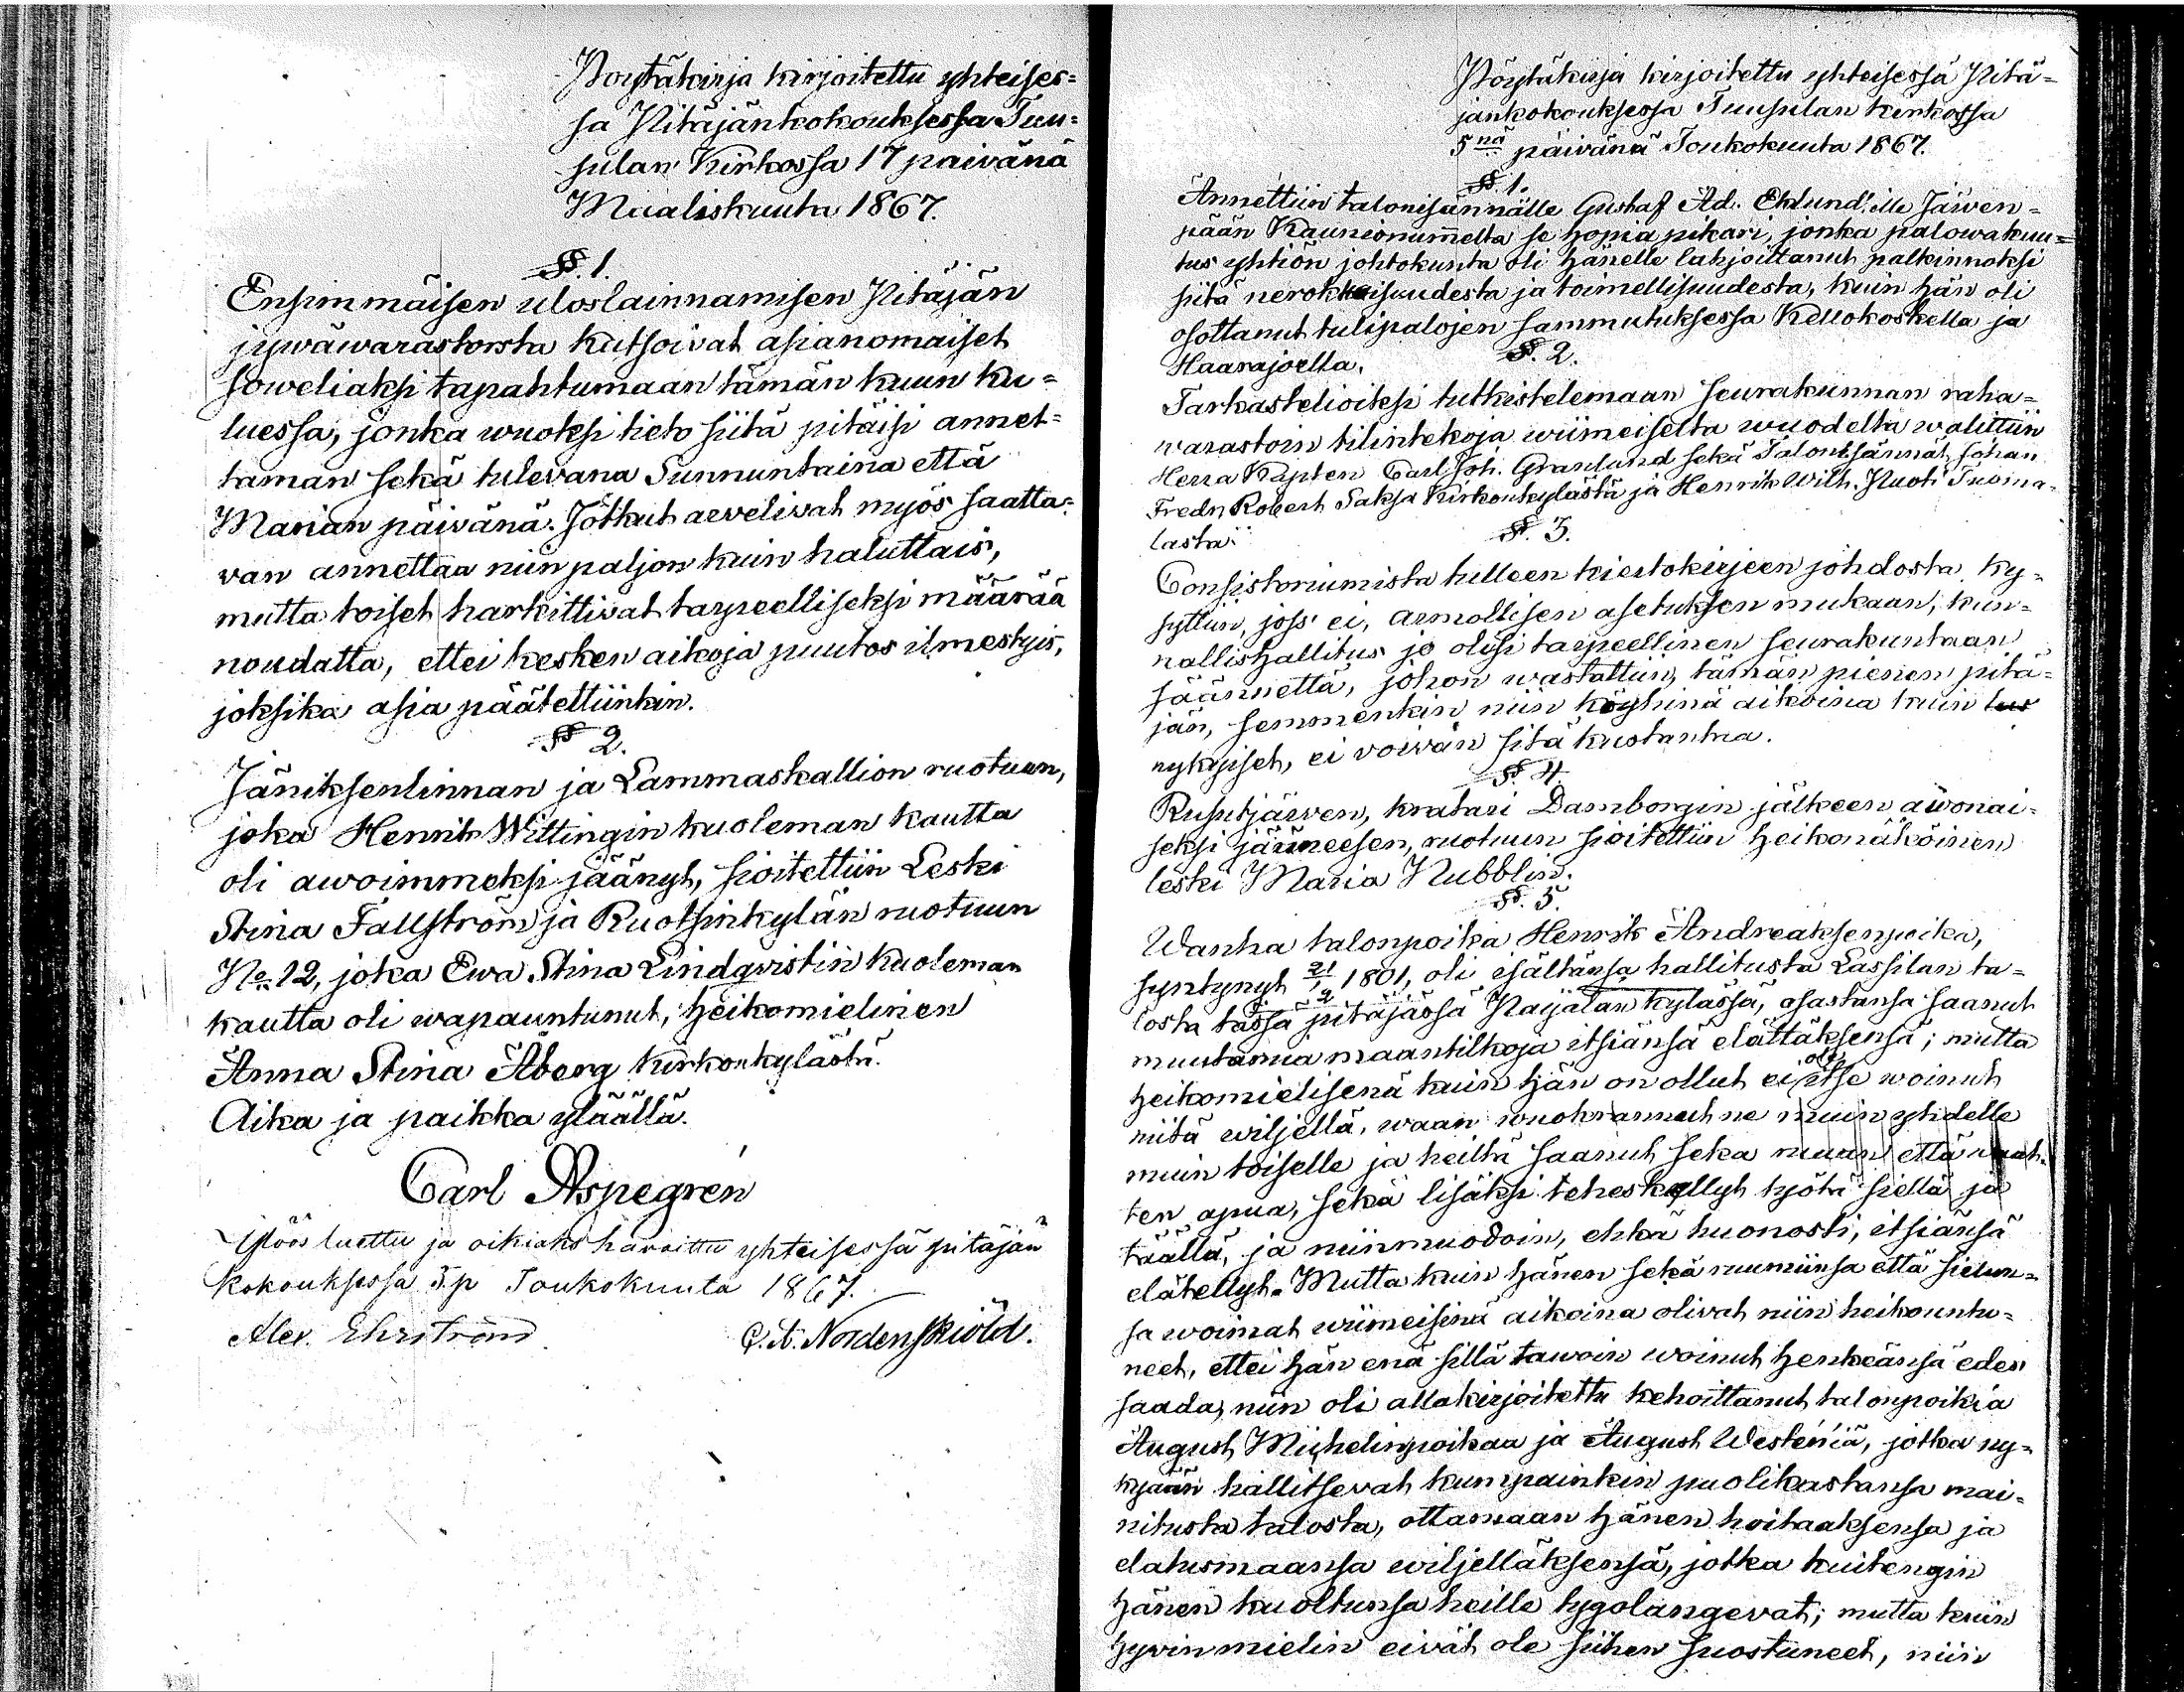 Pöytäkirja kirjoitettu yhteises=
sa Pitäjänkokouksessa Tuu=
sulan Kirkossa 17 päivänä
Maaliskuuta 1867.
§. 1.
Ensimmäisen uloslainnamisen Pitäjän
jywäwarastosta katsoivat asianomaiset
soweliaksi tapahtumaan tämän kuun ku=
luessa, jonka wuoksi tieto siitä pitäisi annet=
taman sekä tulevana Sunnuntaina että
Marian päivänä. Jotkut arvelivat myös saatta=
van annettaa niin paljon kuin haluttais,
mutta toiset harkittivat tarpeelliseksi määrää
noudatta, ettei kesken aikoja puutos ilmestyis,
joksika asia päätettiinkin.
§ 2.
Jäniksenlinnan ja Lammaskallion ruotuun,
joka Henrik Wittingin kuoleman kautta
oli awoimmeksi jäänyt, sioitettiin Leski
Stina Fällström ja Ruotsinkylän ruotuun
No. 12, joka Ewa Stina Lindqvistin kuoleman
kautta oli wapauntunut, heikomielinen
Anna Stina Åberg kirkonkylästä.
Aika ja paikka yläällä.
Carl Aspegrén
Ylös luettu ja oikiaks havaittu yhteisessä pitäjän
kokouksessa 5.p Toukokuuta 1867.
Alex. Ehrström. C. A. Nordenskiöld.
Pöytäkirja kirjoitettu yhteisessä Pitä=
jänkokouksessa Tuusulan kirkossa
5nä päivänä Toukokuuta 1867.
§. 1.
Annettiin talonisännälle Gustaf Ad. Eklund'ille Järwen=
pään Kaunionummelta se hopia pikari, jonka palowakuu=
tus yhtiön johtokunta oli hänelle lahjoittanut palkinnoksi
siitä nerokkaisuudesta ja toimellisuudesta, kuin hän oli
osottanut tulipalojen sammutuksessa Kellokoskella ja
Haarajoella.
§. 2.
Tarkastelioiksi tutkistelemaan seurakunnan raha=
warastoin tilintekoja wiimeiseltä wuodelta walittiin
Herra Kapten Carl Joh. Granlund sekä Talonisännät Johan
Fredr. Robert Saksa Kirkonkylästä ja Henrik Wilh. Ruoti Tuoma=
lasta.
§. 3.
Consistoriumista tulleen kiertokirjeen johdosta ky=
syttiin, joss' ei, armollisen asetuksen mukaan, kun=
nallishallitus jo olisi tarpeellinen seurakuntaan
säännettä, johon wastattiin, tämän pienen pitä=
jän, semmenkin niin köyhinä aikoina kuin
nykyiset, ei voivan sitä kustantaa.
§. 4.
Rusutjärven, kratari Damborgin jälkeen awonai=
seksi jääneesen, ruotuun sioitettiin heikonäköinen
leski Maria Nubblin.
§. 5.
Wanha talonpoika Henrik Andreaksenpoika,
syntynyt 21/2 1801, oli isältänsä hallitusta Lassilan ta=
losta tässä pitäjässä Paijalan kylässä, osastansa saanut
muutamia maantilkoja itsiänsä elättäksensä; mutta
heikomielisenä kuin hän on ollut ei ole itse woinut
niitä wiljellä, waan wuokrannut ne muin yhdelle
muin toiselle ja heiltä saanut sekä ruuan että waat=
ten apua, sekä lisäksi teheskellyt työtä siellä ja
täällä, ja niinmuodoin, ehkä huonosti, itsiänsä
elätellyt. Mutta kuin hänen sekä ruumiinsa että sielun=
sa woimat wiimeisinä aikoina olivat niin heikountu=
neet, ettei hän enä sillä tawoin woinut henkeänsä eden
saada, niin oli allakirjoitettu kehoittanut talonpoikia
August Michelinpoikaa ja August Westén'iä, jotka ny=
kyään hallitsevat kumpainkin puolikastansa mai=
nitusta talosta, ottamaan hänen hoitaaksensa ja
elatusmaansa wiljelläksensä, jotka kuitengin
hänen kuoltunsa heille lygolangevat; mutta kuin
hyvin mielin eivät ole siihen suostuneet, niin